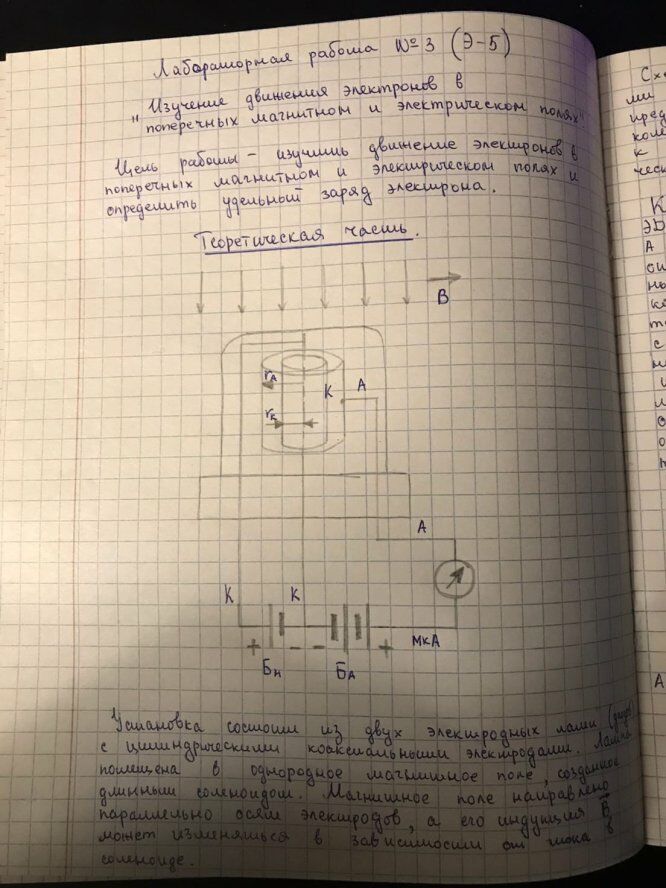 Лабораторная работа №3 (Э-5)
"Изучение движения электронов в
поперечных магнитном и электрическом полях"
Цель работы - изучить движение электронов в
поперечных магнитном и электрическом полях и
определить удельный заряд электрона.
Теоретическая часть.
B
rA
K A
rк
A
K K
+ - - + мкА
Бн БА
Установка состоит из двух электродных ламп (диода)
с цилиндрическими коаксиальными электродами. Лампа
помещена в однородное магнитное поле, созданное
длинным соленоидом. Магнитное поле направлено
параллельно осям электродов, а его индукция B
может изменяться в зависимости от тока в
соленоиде.
Сх
ми
пред
к
чес
К
А
с
А